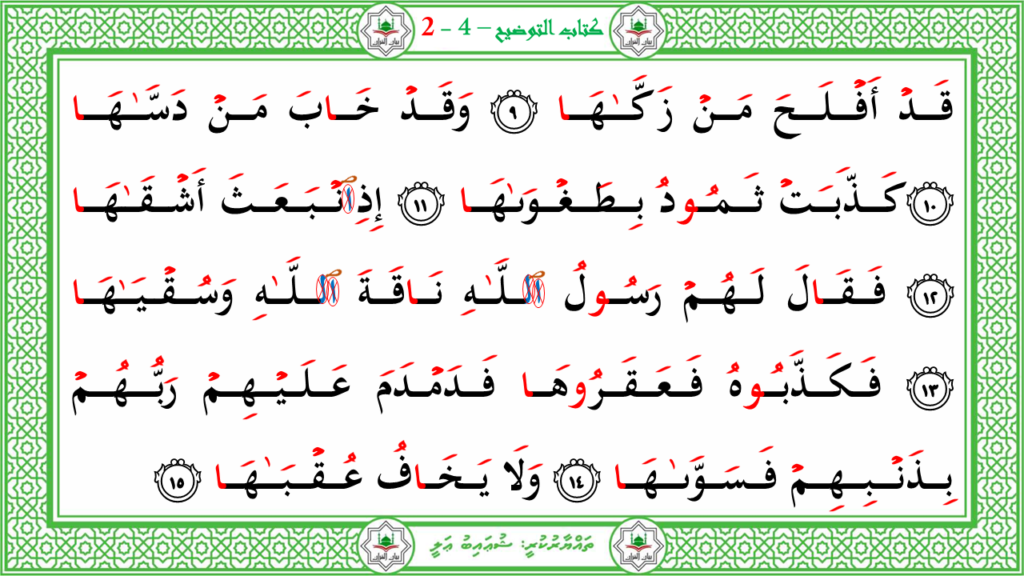 كتاب التوضيح – 4 - 2
قَدْ أَفْلَحَ مَنْ زَكَّىٰهَا ٩ وَقَدْ خَابَ مَنْ دَسَّىٰهَا
١٠ كَذَّبَتْ ثَمُودُ بِطَغْوَىٰهَا ١١ إِذِ انْۢبَعَثَ أَشْقَىٰهَا
١٢ فَقَالَ لَهُمْ رَسُولُ اللَّهِ نَاقَةَ اللَّهِ وَسُقْيَـٰهَا
١٣ فَكَذَّبُوهُ فَعَقَرُوهَا فَدَمْدَمَ عَلَيْهِمْ رَبُّهُمْ
بِذَنْۢبِهِمْ فَسَوَّىٰهَا ١٤ وَلَا يَخَافُ عُقْبَـٰهَا ١٥
ތައްޔާރުކުރީ: ޝުޢައިބު ޢަލީ